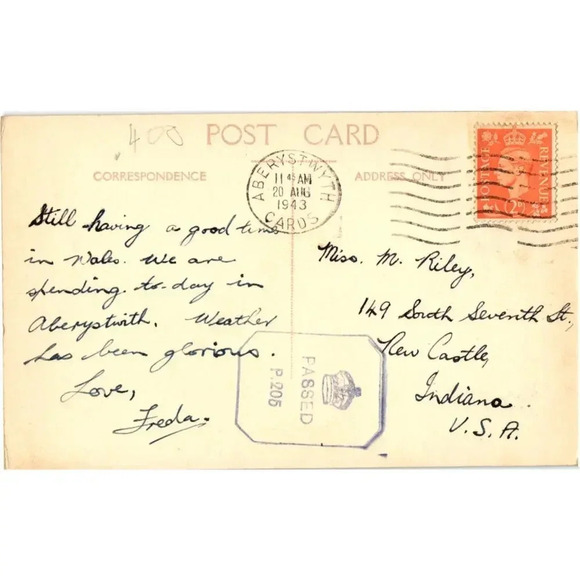 400
POST CARD
CORRESPONDENCE
ADDRESS ONLY
ABERYSTWYTH
11 45 AM
20 AUG
1943
CARDS
POSTAGE
REVENUE
Still having a good time
in Wales. We are
spending to-day in
Aberystwith. Weather
has been glorious.
Love,
Freda.
Miss. M. Riley,
149 South Seventh St.,
New Castle,
Indiana.
U.S.A.
PASSED
P.205